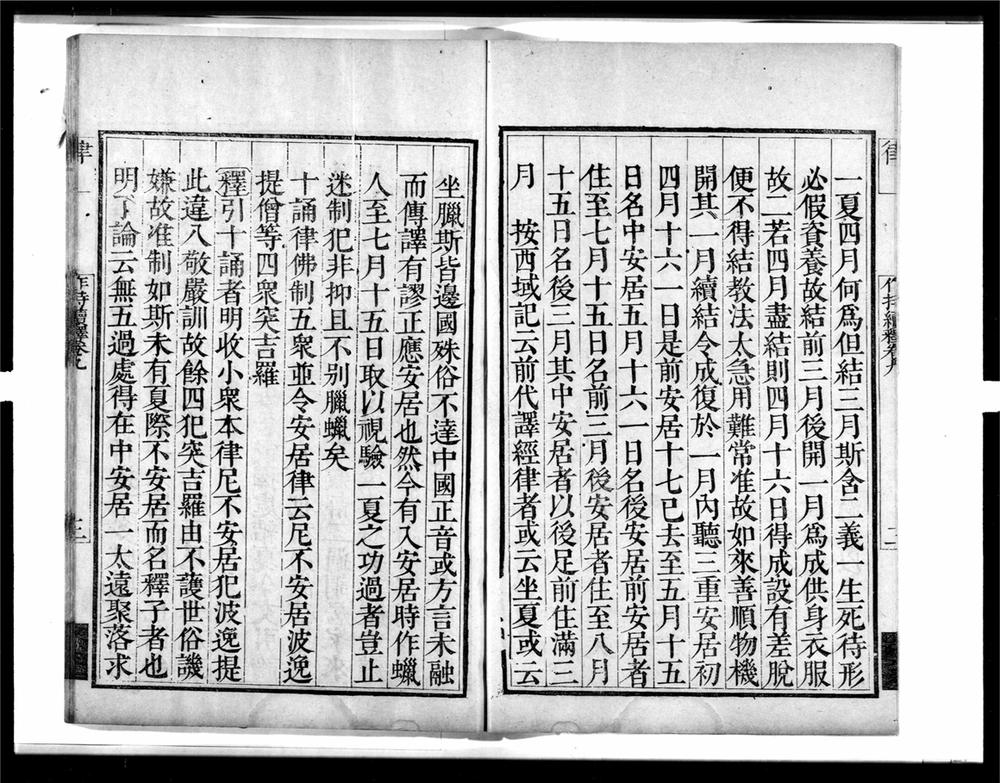 一夏四月何爲但結三月斯含二義一生死待形
必假資養故結前三月後開一月爲成供身衣服
故二若四月盡結則四月十六日得成設有差脫
便不得結教法太急用難常准故如來善順物機
開其一月續結令成復於一月內聽三重安居初
四月十六一日是前安居十七已去至五月十五
日名中安居五月十六一日名後安居前安居者
住至七月十五日名前三月後安居者住至八月
十五日名後三月其中安居者以後足前住滿三
月　按西域記云前代譯經律者或云坐夏或云
坐臘斯皆邊國殊俗不達中國正音或方言未融
而傳譯有謬正應安居也然今有入安居時作蠟
人至七月十五日取以視驗一夏之功過者豈止
迷制犯非抑且不别臘蠟矣
十誦律佛制五衆並令安居律云尼不安居波逸
提僧等四衆突吉羅
釋引十誦者明收小衆本律尼不安居犯波逸提
此違八敬嚴訓故餘四犯突吉羅由不護世俗譏
嫌故准制如斯未有夏際不安居而名釋子者也
明了論云無五過處得在中安居一太遠聚落求
律
作持續釋卷九
三
律
作持續釋卷九
二